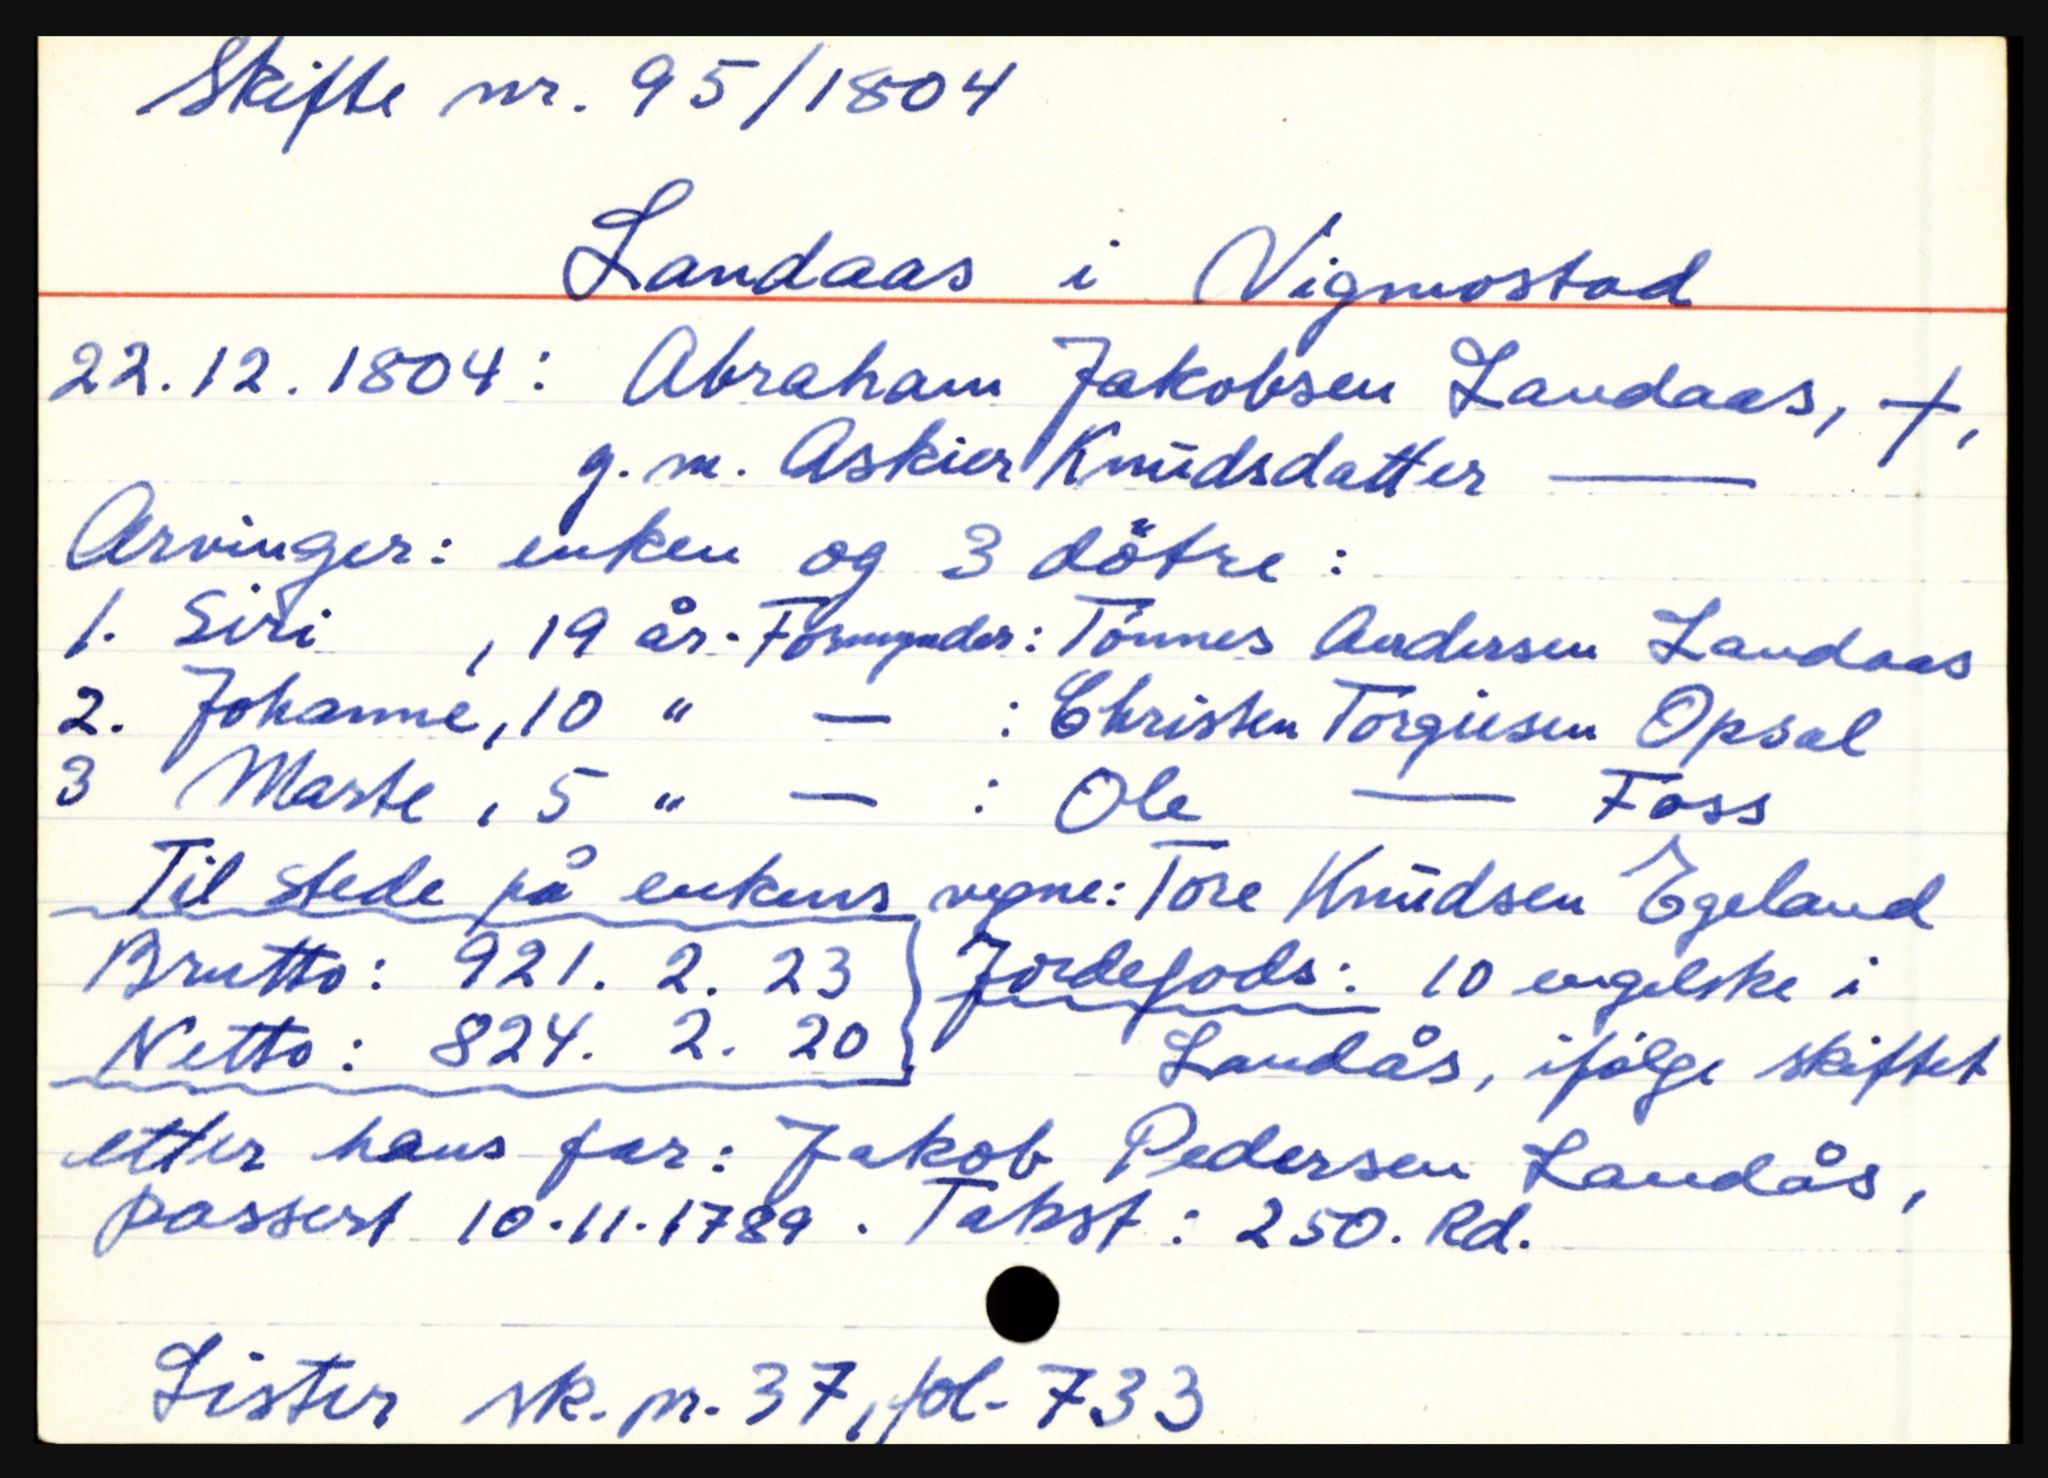 Skifte nr. 95/1804
Landaas i Vigmostad
22.12.1804: Abraham Jakobsen Landaas, +,
g. m. Askier Knudsdatter —
Arvinger: enken og 3 døtre:
1. Siri , 19 år. Formynder: Tönnes Andersen Landaas
2. Johanne, 10 " — : Christen Torgiusen Opsal
3 Marte , 5 " — : Ole — Foss
Til stede på enkens vegne: Tore Knudsen Egeland
Brutto: 921. 2. 23 } Jordegods: 10 engelske i
Netto: 824. 2. 20 Landås, ifølge skiftet
etter hans far: Jakob Pedersen Landås,
passert 10.11.1789. Takst: 250. Rd.
Lister sk. pr. 37, fol. 733